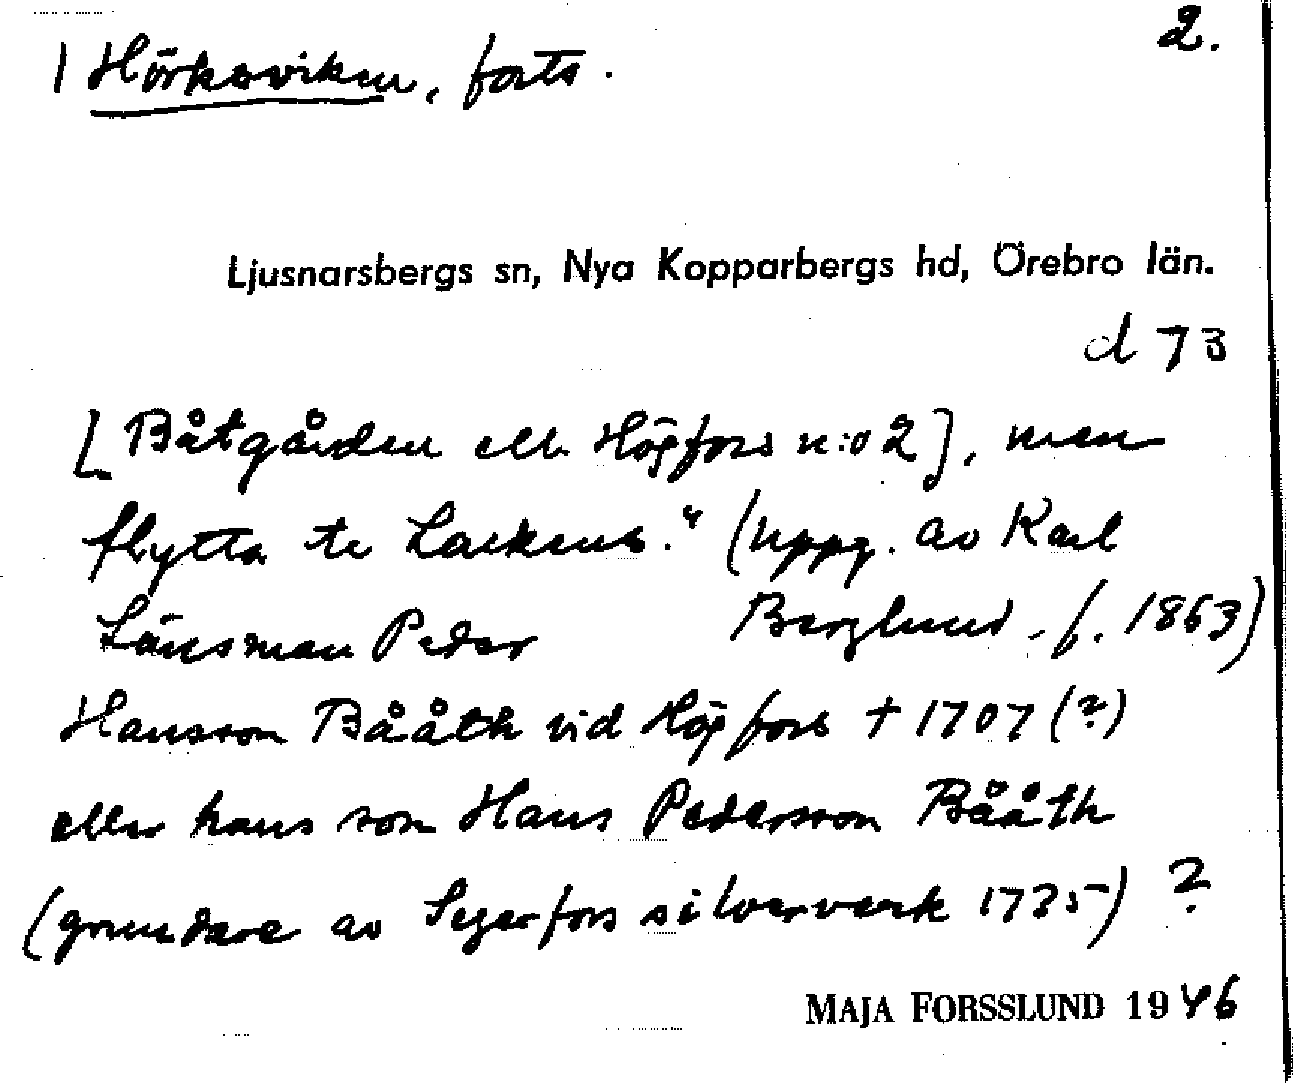 2.
| Hörksviken, forts.
Ljusnarsbergs sn, Nya Kopparbergs hd, Örebro län.
d 73
[Båtgården ell. Högfors n:o 2], men
flytta te Lacksens." (uppg. av Karl
Berglund, f. 1863)
Länsman Peder
Hansson Bååth vid Högfors † 1707 (?)
eller hans son Hans Pedersson Bååth
(grundare av Segerfors silververk 1735) ?
MAJA FORSSLUND 1946